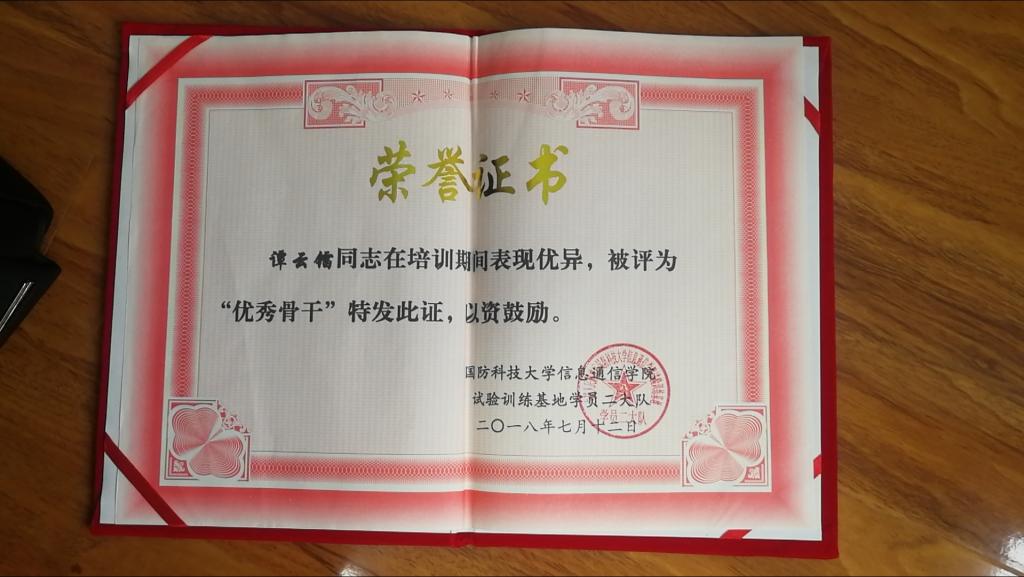 荣誉证书
谭云儒同志在培训期间表现优异，被评为
“优秀骨干”特发此证，以资鼓励。
国防科技大学信息通信学院
试验训练基地学员二大队
二〇一八年七月十二日
学员二大队